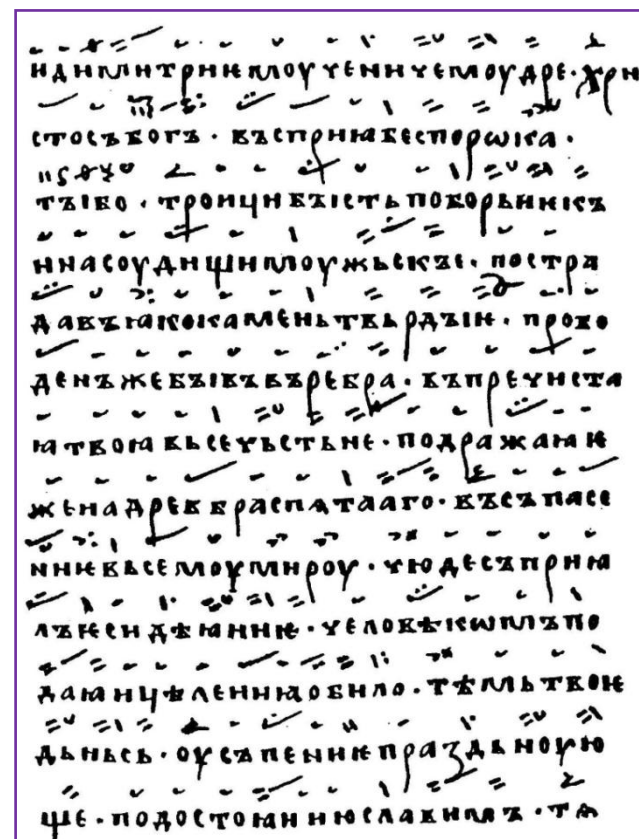 и димитриѥ моуѵениѵе моудре · хри
стосъ богъ · въсприꙗ бес порѡка ·
тъı бо · троици бъıсть поборьникъ
и на соудищи моужьскъı · постра
давъ ꙗко камень твьрдъıи · пробо
денъ же бъıвъ въ ребра · въ преѵиста
ꙗ твоꙗ вьсеѵьстьне · подражаꙗ ѥ
же на древѣ распѧтааго · въ съпасе
ниѥ вьсемоу мироу · ѵюдесъ приꙗ
лъ ѥси дѣꙗниѥ · ѵеловѣкѡмъ по
даꙗ ицѣлениꙗ обило · тѣмь твоѥ
дьньсь · оусъпениѥ праздьноую
ще · по достоꙗнию славимъ · тѧ